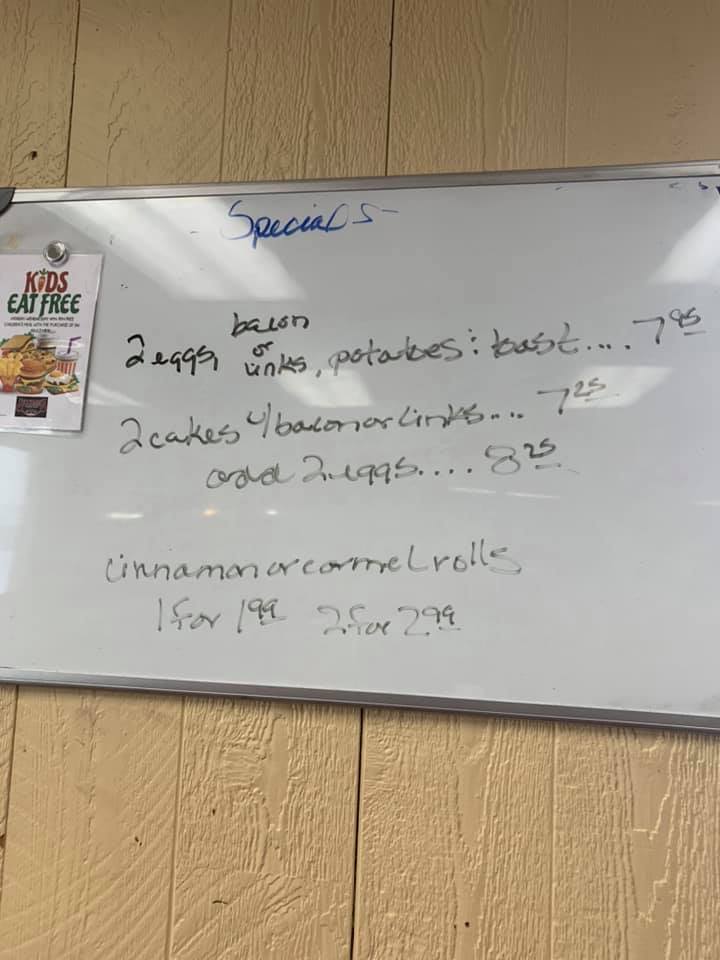 Specials
KIDS
EAT FREE
2 eggs, bacon or links, potatoes : toast.... 7 95
2 cakes w/ bacon or links... 7 25
add 2 eggs.... 8 25
cinnamon or carmel rolls
1 for 1 99 2 for 2 99